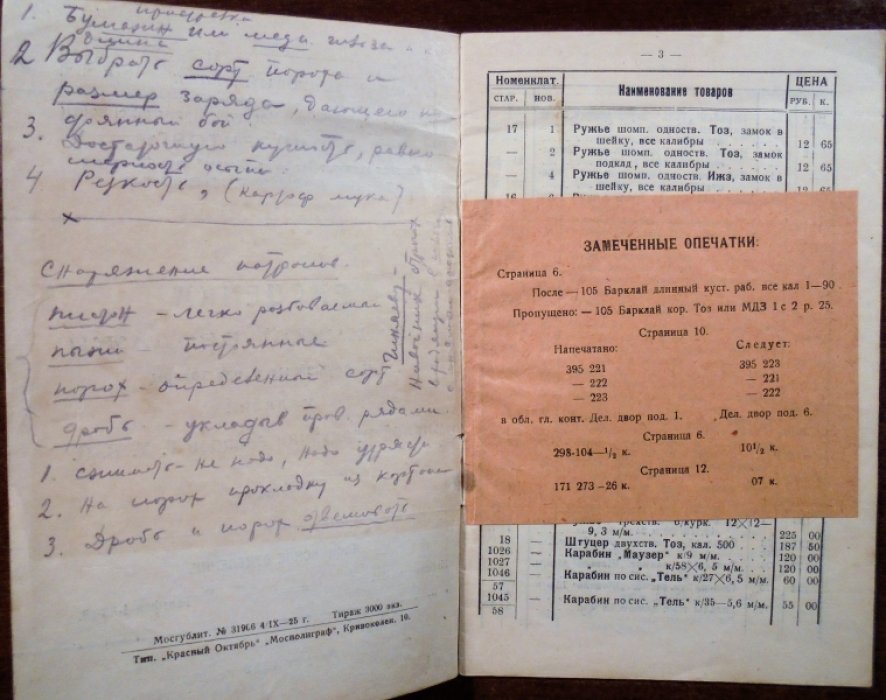 пристрелка
1. Бумажн или медн. гильза
2 Выбрать сорт пороха и
размер заряда, дающего
3. Достаточную кучность, равно
мерность осыпи
4 Резкость,
Снаряжение патронов
пистон - легко разбиваемый
пыжи - постоянные
порох - определенный сорт
дробь - укладыв пров. рядами
1. сжимать - не надо, надо
2. На порох прокладку из картона
3. Дробь и порох
Мосгублит. № 31966 4/IX—25 г. Тираж 3000 экз.
Тип. „Красный Октябрь" „Мосполиграф", Кривоколен. 10.
— 3 —
Номенклат. Наименование товаров ЦЕНА
СТАР. НОВ. РУБ. К.
17 1 Ружье шомп. одноств. Тоз, замок в
шейку, все калибры . . . . . . 12 65
— 2 Ружье шомп. одноств. Тоз, замок
подклд, все калибры . . . . . 12 65
— 4 Ружье шомп. одноств. Ижз, замок в
шейку, все калибры . . . . . . 12 65
ЗАМЕЧЕННЫЕ ОПЕЧАТКИ:
Страница 6.
После — 105 Барклай длинный куст. раб. все кал 1—90 .
Пропущено: — 105 Барклай кор. Тоз или МДЗ 1 с 2 р. 25.
Страница 10.
Напечатано: Следует:
395 221 395 223
— 222 — 221
— 223 — 222
в обл. гл. конт. Дел. двор под. 1. Дел. двор под. 6.
Страница 6.
298-104—1/2 к. 10 1/2 к.
Страница 12.
171 273—26 к. 07 к.
9,3 м/м. . . . 225 00
18 — Штуцер двухств. Тоз, кал. 500 . . . 187 50
1026 — Карабин „Маузер" к/9 м/м. . . . 120 00
1027 — „ „ к/58×6, 5 м/м. . . 120 00
1046 — Карабин по сис. „Тель" к/27×6,5 м/м. 60 00
57
1045 — Карабин по сис. „Тель" к/35—5,6 м/м. 55 00
58